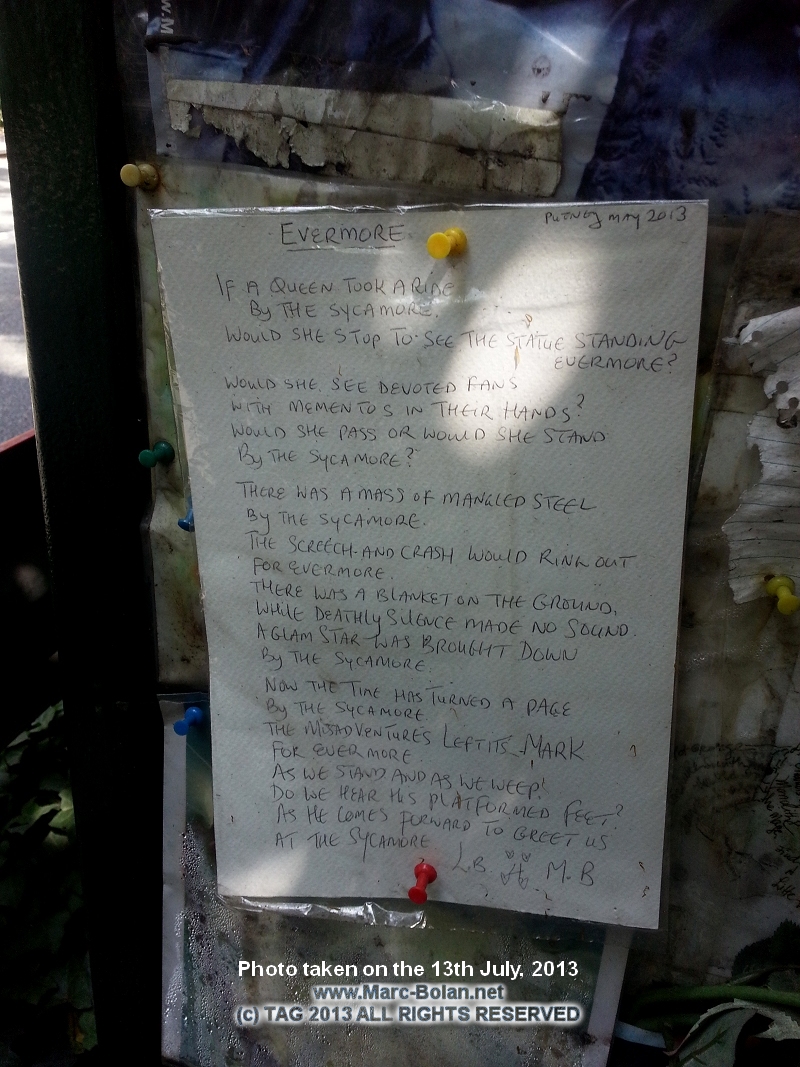 W.M
EVERMORE
PUTNEY MAY 2013
IF A QUEEN TOOK A RIDE
BY THE SYCAMORE.
WOULD SHE STOP TO SEE THE STATUE STANDING
EVERMORE?
WOULD SHE SEE DEVOTED FANS
WITH MEMENTOS IN THEIR HANDS?
WOULD SHE PASS OR WOULD SHE STAND
BY THE SYCAMORE?
THERE WAS A MASS OF MANGLED STEEL
BY THE SYCAMORE.
THE SCREECH AND CRASH WOULD RING OUT
FOR EVERMORE.
THERE WAS A BLANKET ON THE GROUND,
WHILE DEATHLY SILENCE MADE NO SOUND.
A GLAM STAR WAS BROUGHT DOWN
BY THE SYCAMORE.
NOW THE TIME HAS TURNED A PAGE
BY THE SYCAMORE
THE MISADVENTURES LEFT ITS MARK
FOR EVERMORE.
AS WE STAND AND AS WE WEEP!
DO WE HEAR HIS PLATFORMED FEET?
AS HE COMES FORWARD TO GREET US
AT THE SYCAMORE
L.B. M.B
Photo taken on the 13th July, 2013
www.Marc-Bolan.net
(c) TAG 2013 ALL RIGHTS RESERVED